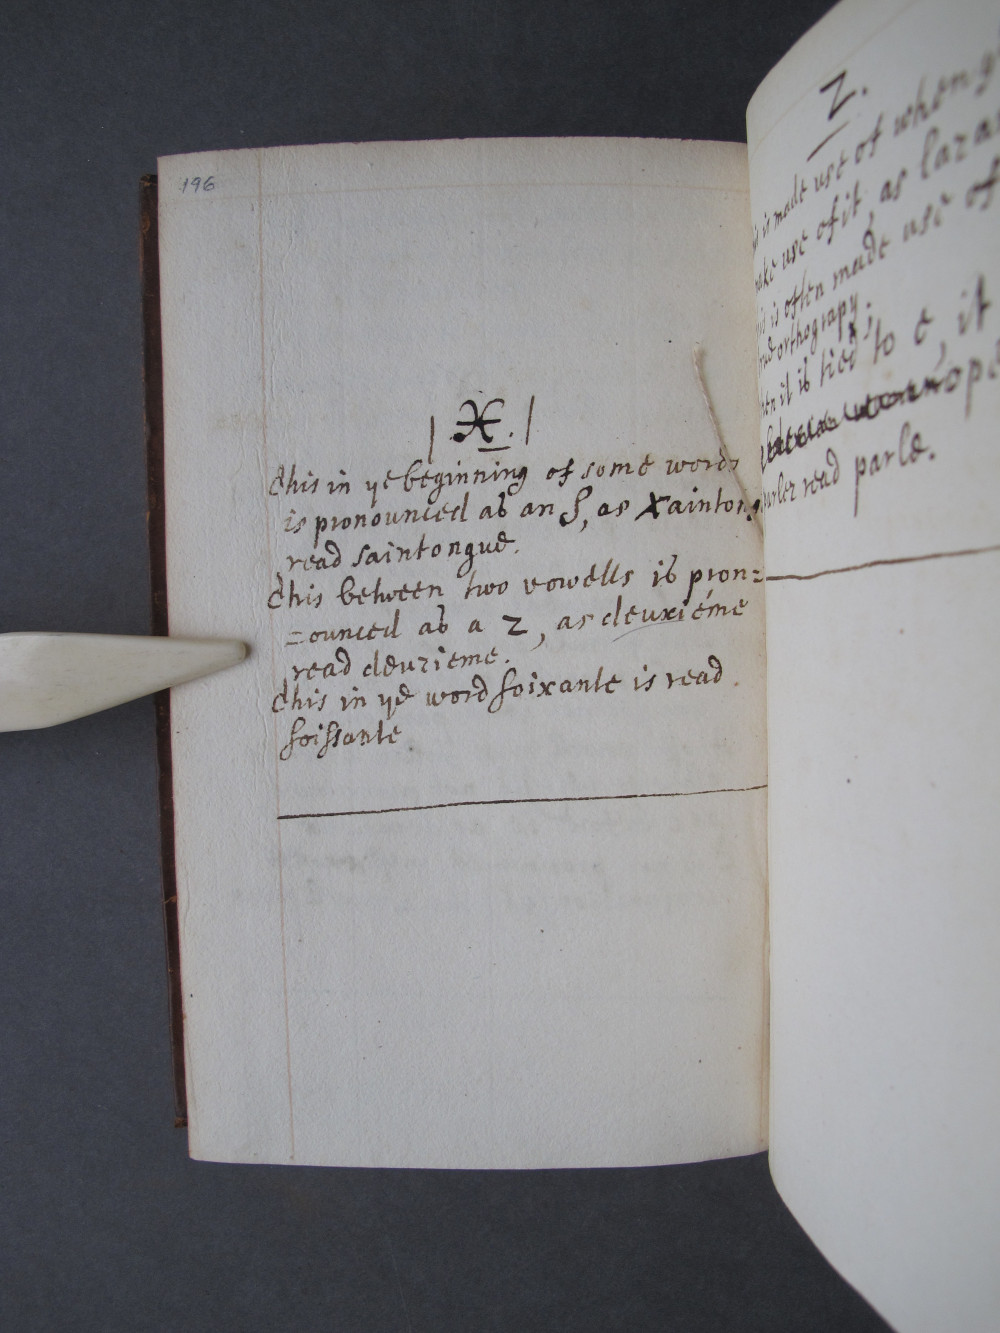 196
| X. |
this in ye beginning of some words
is pronounced as an S, as Xaintong
read saintongue.
this between two vowells is pron=
=ounced as a z, as deuxiéme
read deuzieme.
this in ye word soixante is read.
soissante
Z.
is made use of when
make use of it, as lazar
is often made use of
orthograpy.
it is tied to e, it
ope
parler read parle.